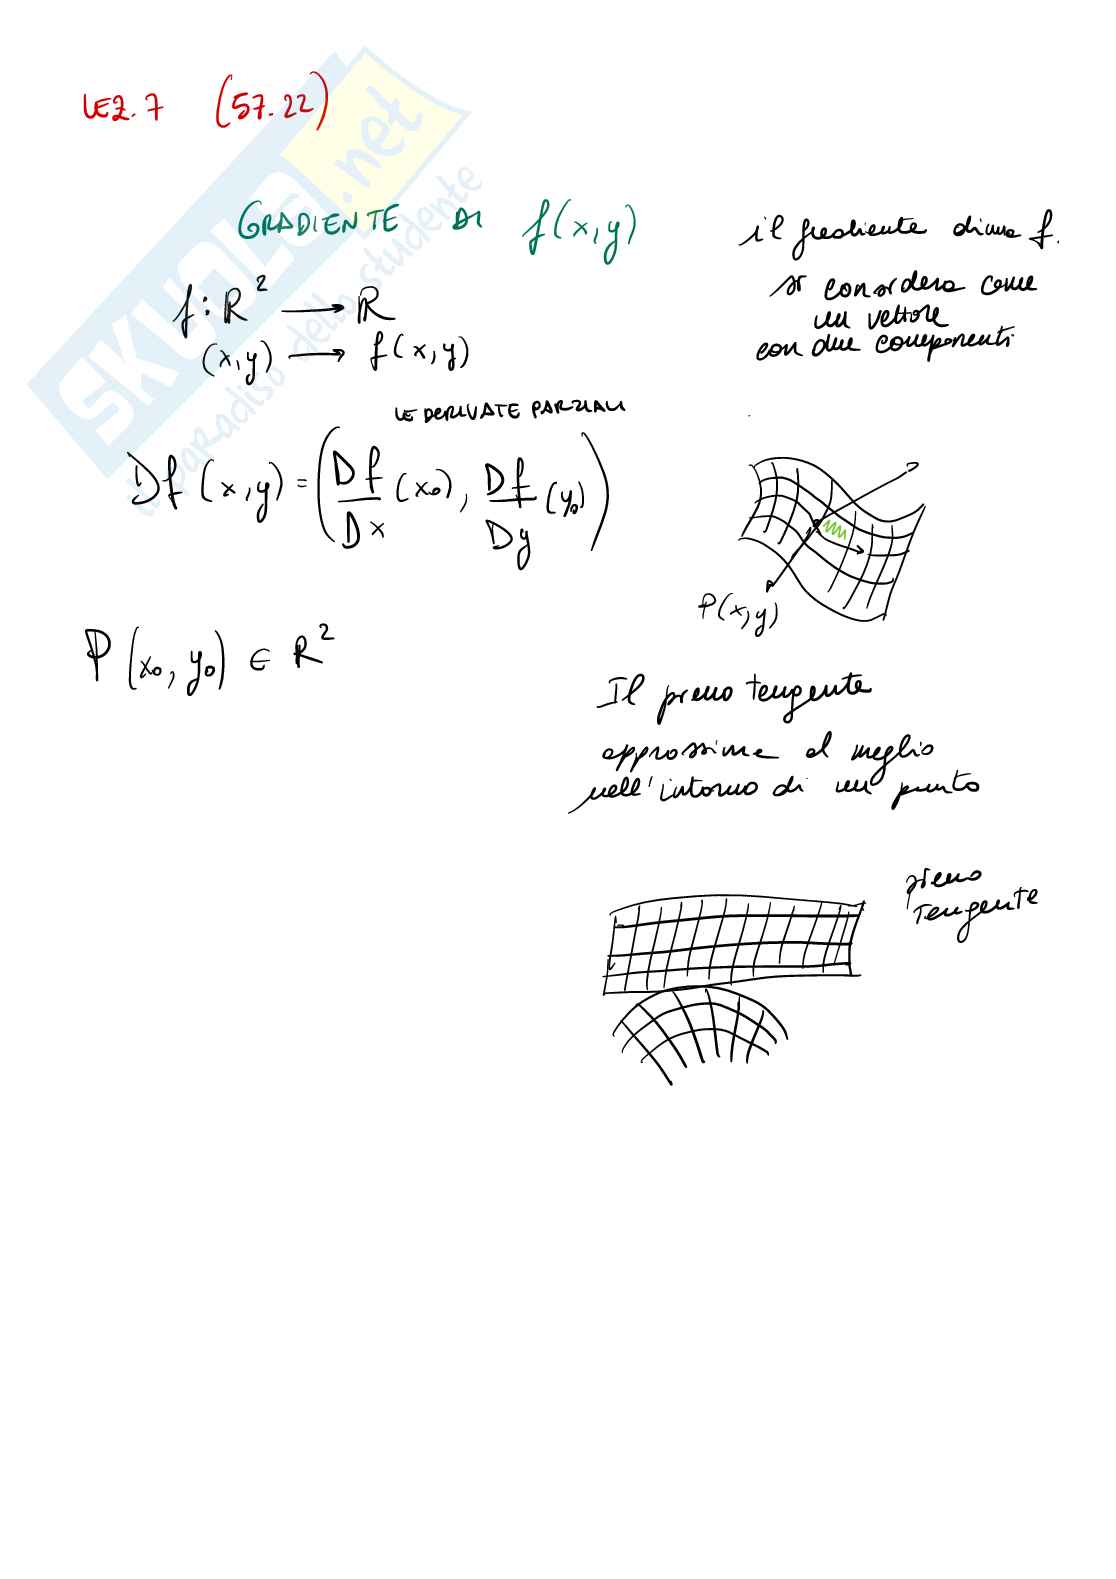 LEZ. 7 (57.22)
GRADIENTE DI f(x,y)
f: R² → R
(x,y) → f(x,y)
il gradiente di una f.
si considera come
un vettore
con due componenti
LE DERIVATE PARZIALI
Df (x,y) = (Df/Dx (x₀), Df/Dy (y₀))
P(x,y)
P (x₀, y₀) ∈ R²
Il piano tangente
approssima al meglio
nell'intorno di un punto
piano
tangente
SKUOLA.net
il paradiso dello studente